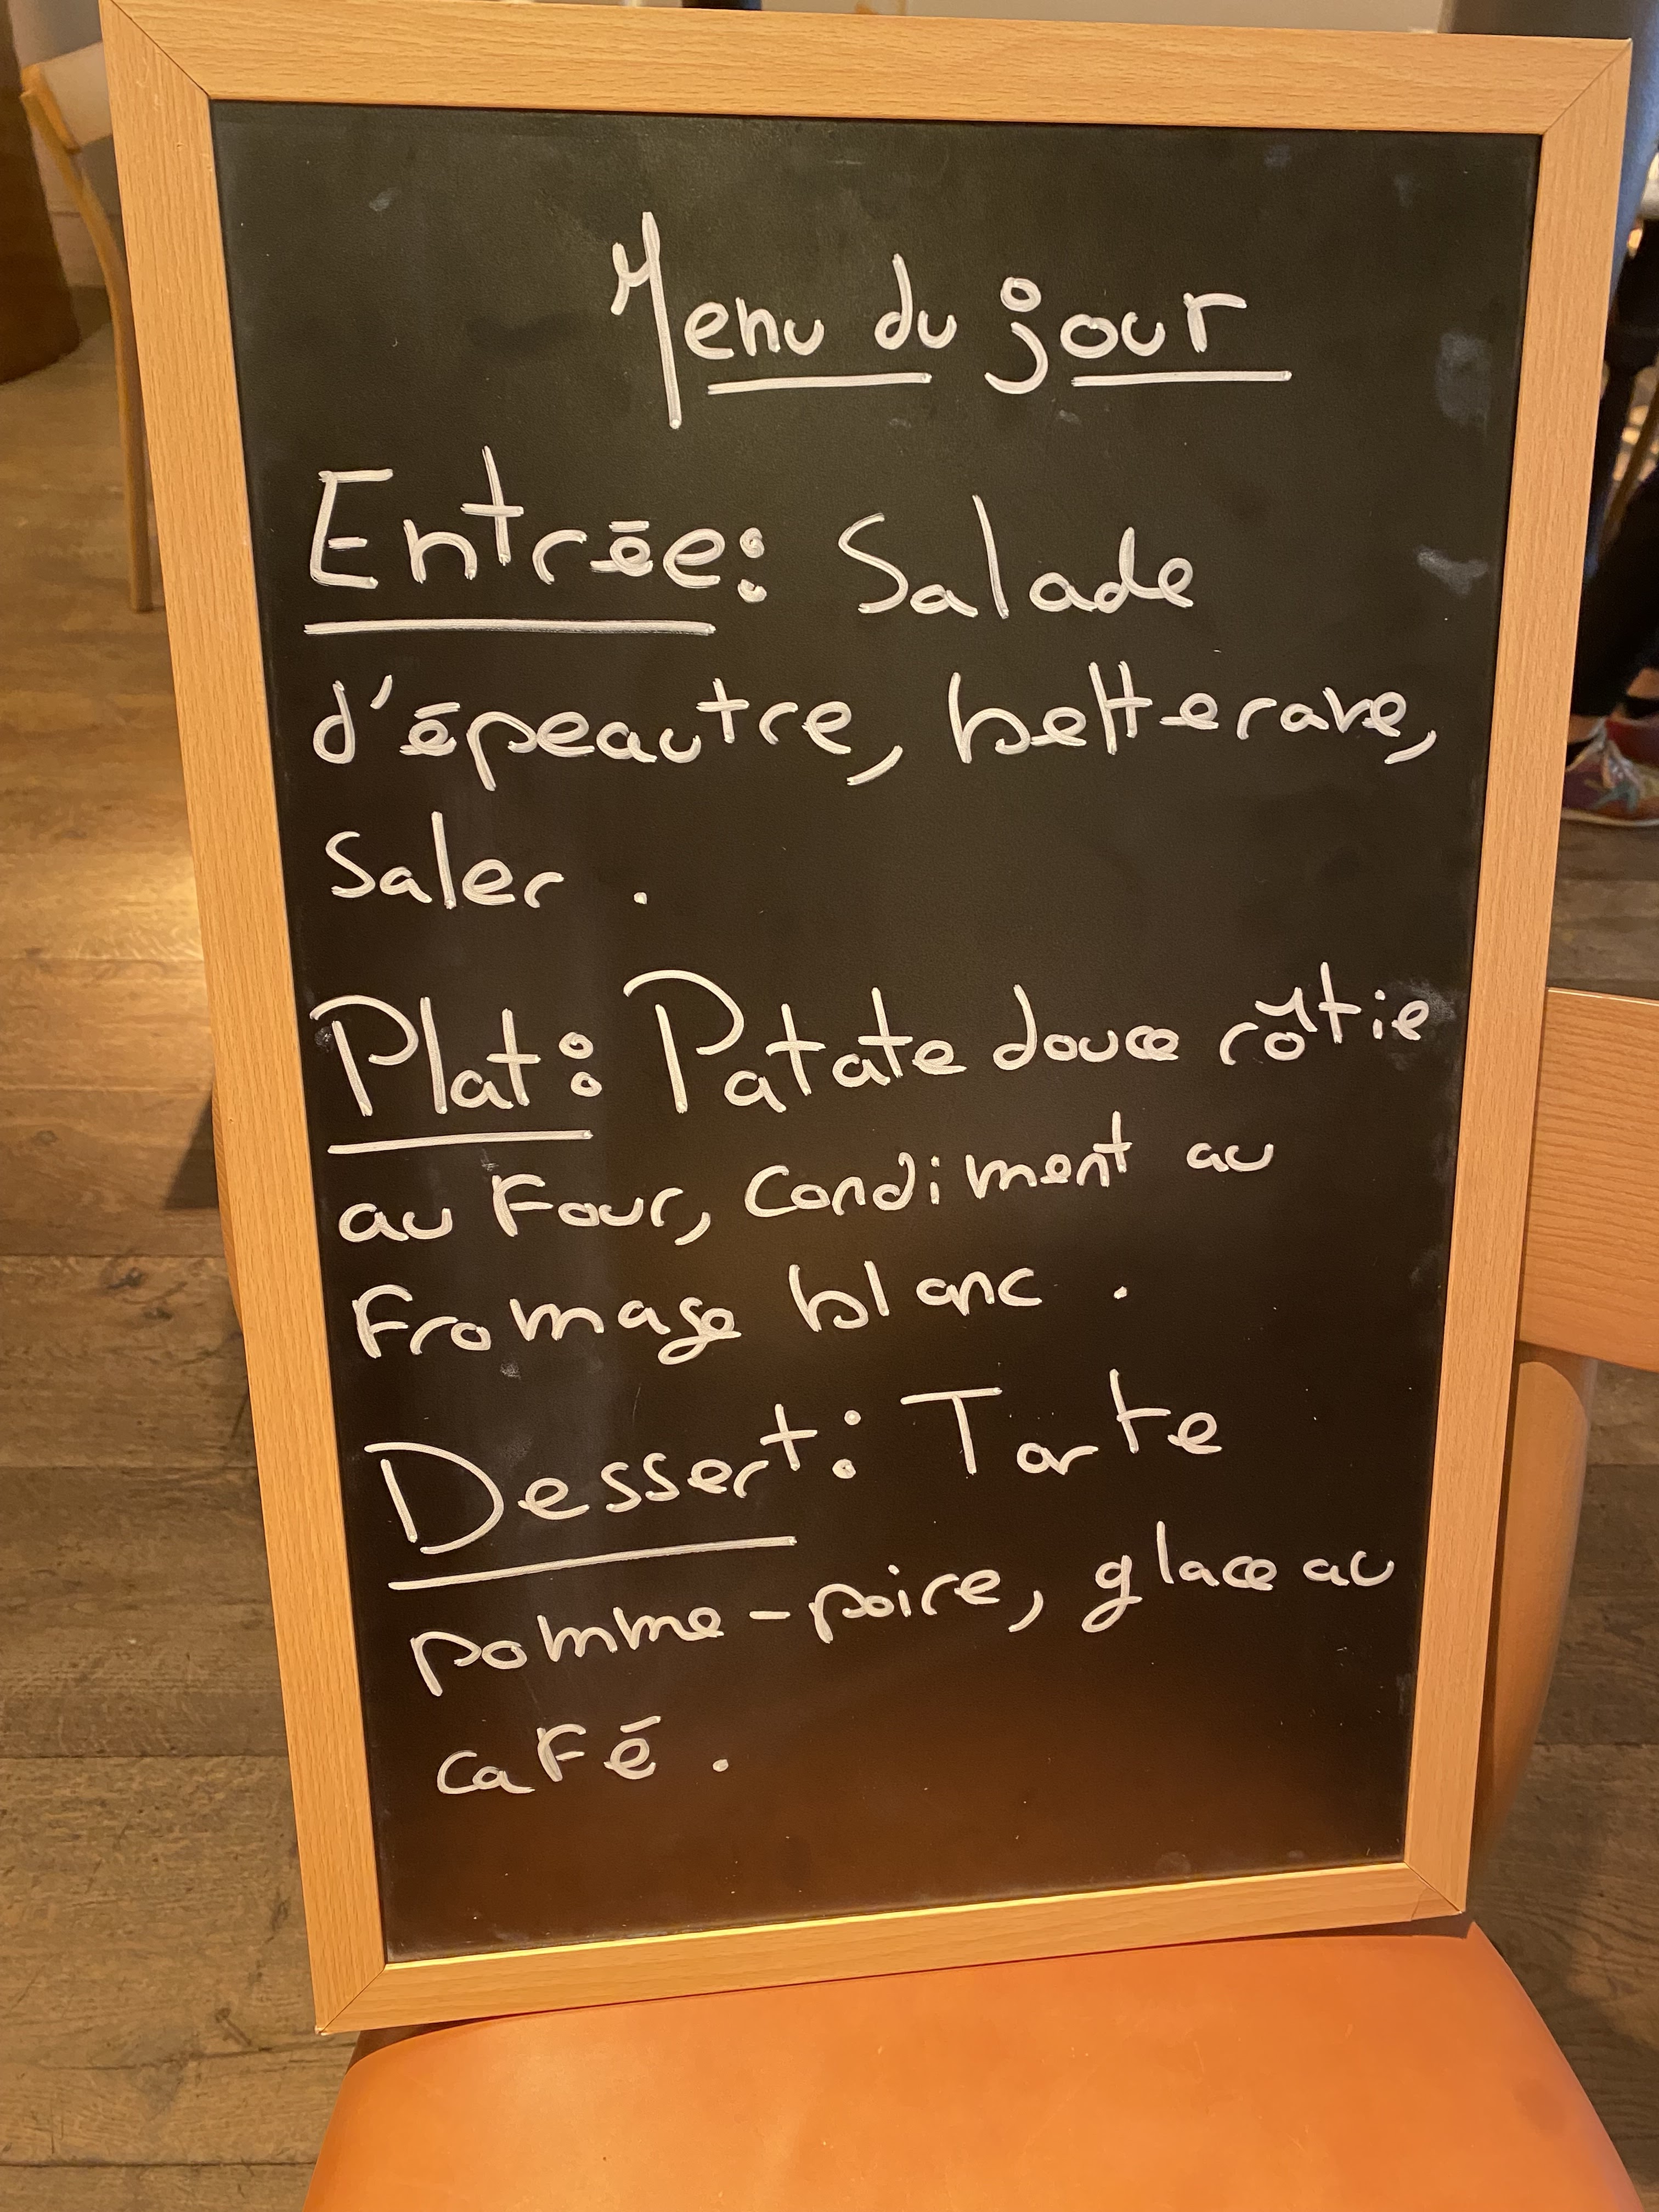 Menu du jour
Entrée: Salade
d'épeautre, betterave,
Saler .
Plat: Patate douce rôtie
au Four, Condiment au
Fromage blanc .
Dessert: Tarte
pomme-poire, glace au
caFé .